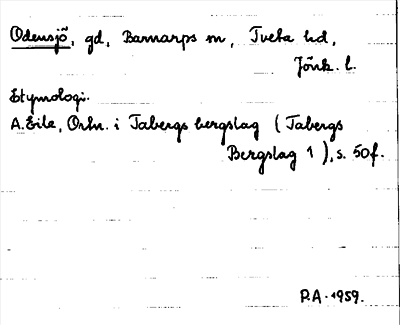 Odensjö, gd, Barnarps sn, Tveta hd,
Jönk. l.
Etymologi.
A. Eile, Ortn. i Tabergs bergslag (Tabergs
Bergslag 1), s. 50 f.
P.A. 1959.